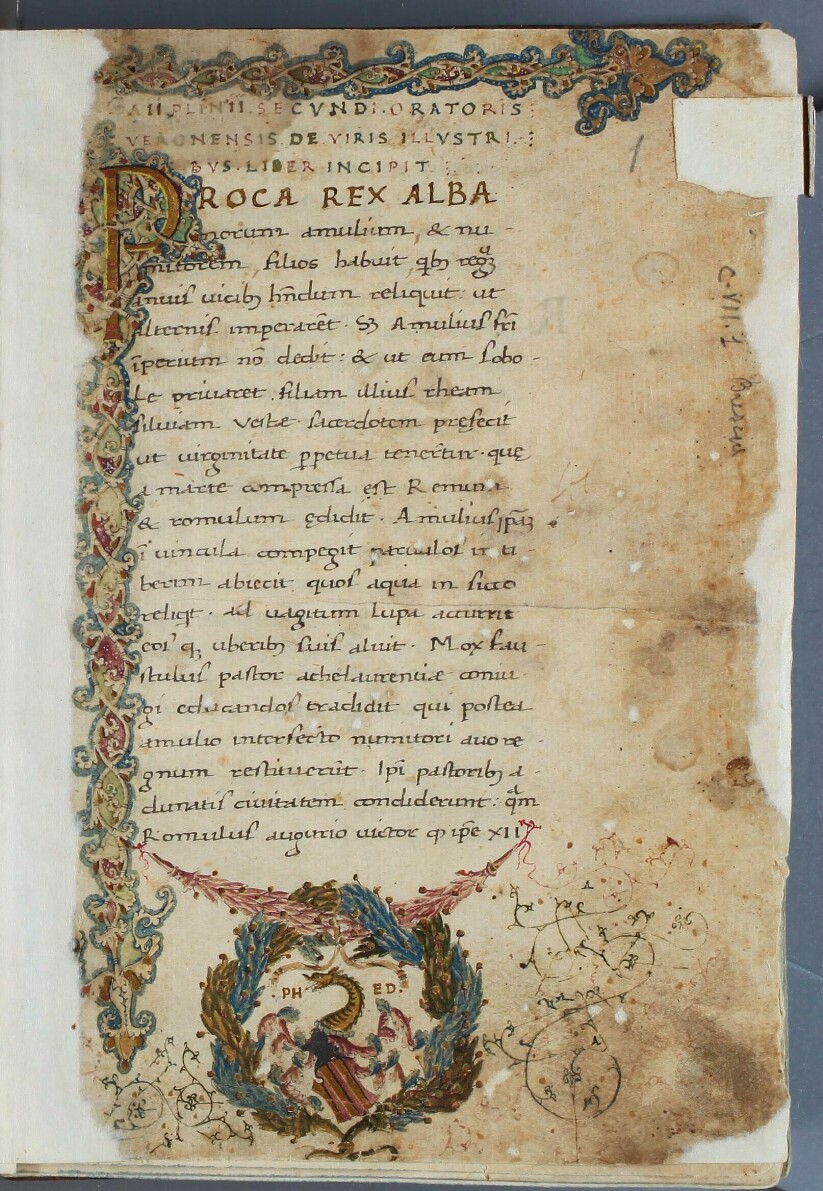 GAII.PLINII.SECVNDI.ORATORIS
VERONENSIS.DE.VIRIS ILLVSTRI.
BVS.LIBER INCIPIT
PROCA REX ALBA
norum amulium, & nu-
mitorem, filios habuit, qib regnū
annuis uicib hñdum reliquit: ut
alternis imperarēt. Sꝫ Amulius frī
īperium nō dedit: & ut eum sobo-
le priuaret. filiam illius rheam
siluiam Vestæ sacerdotem pręfecit
ut uirginitate ꝑpetua tenerētur. quę
a marte compressa est Remum
& romulum ędidit. Amulius ipam
ī uincula compegit paruulos in ti-
berim abiecit quos aqua in sicco
reliqt. ad uagitum lupa accurrit
eosqꝫ uberib suis aluit. Mox fau-
stulus pastor acchelaurentiæ coniu
gi educandos tradidit qui postea
amulio interfecto numitori auo re-
gnum restituerūt. Ipi pastorib a-
dunatis ciuitatem condiderunt: qm
Romulus augurio uictor ꝙ ipe XII
PH ED.
1
C.VII.1